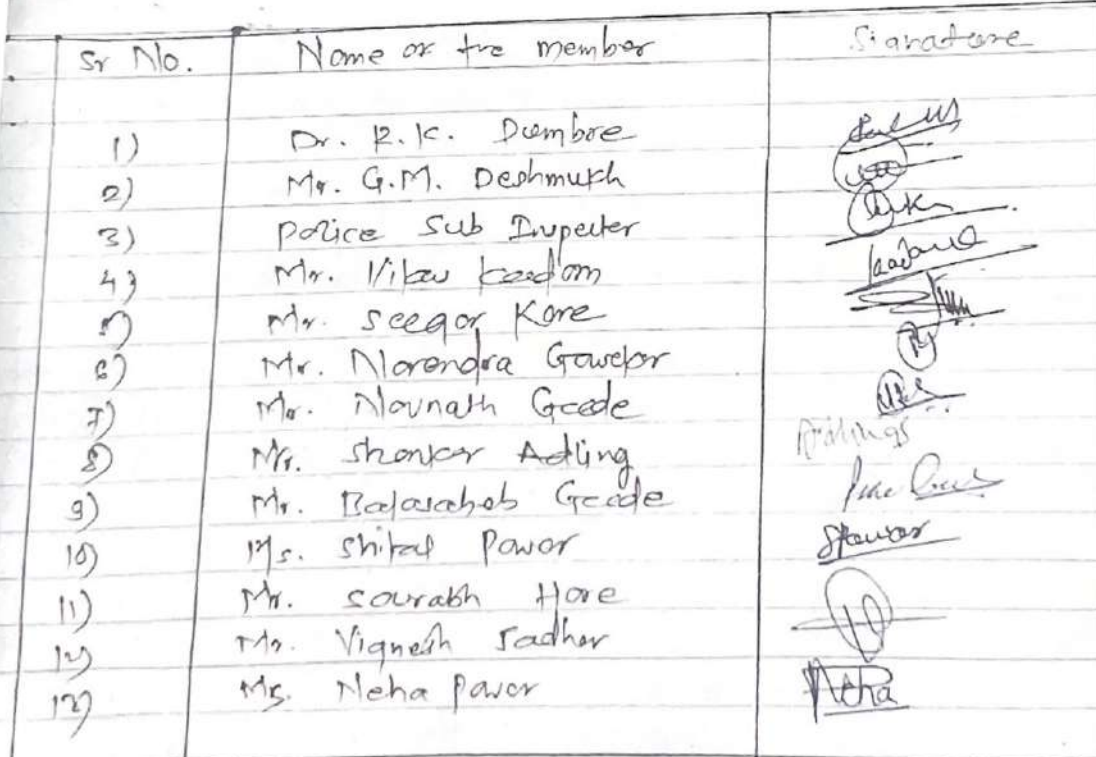 Sr No. Name of the member Signature
1) Dr. R.K. Dumbre
2) Mr. G.M. Deshmukh
3) Police Sub Inspecter
4) Mr. Vikas Kadam kadam
5) Mr. Sagar Kore
6) Mr. Narendra
7) Mr. Navnath Gade
8) Mr. Shankar Adling Adling
9) Mr. Balasaheb Gade
10) Ms. Shital Pawar SPawar
11) Mr. Sourabh Hore
12) Mr. Vignesh Jadhav
13) Ms. Neha Pawar Neha